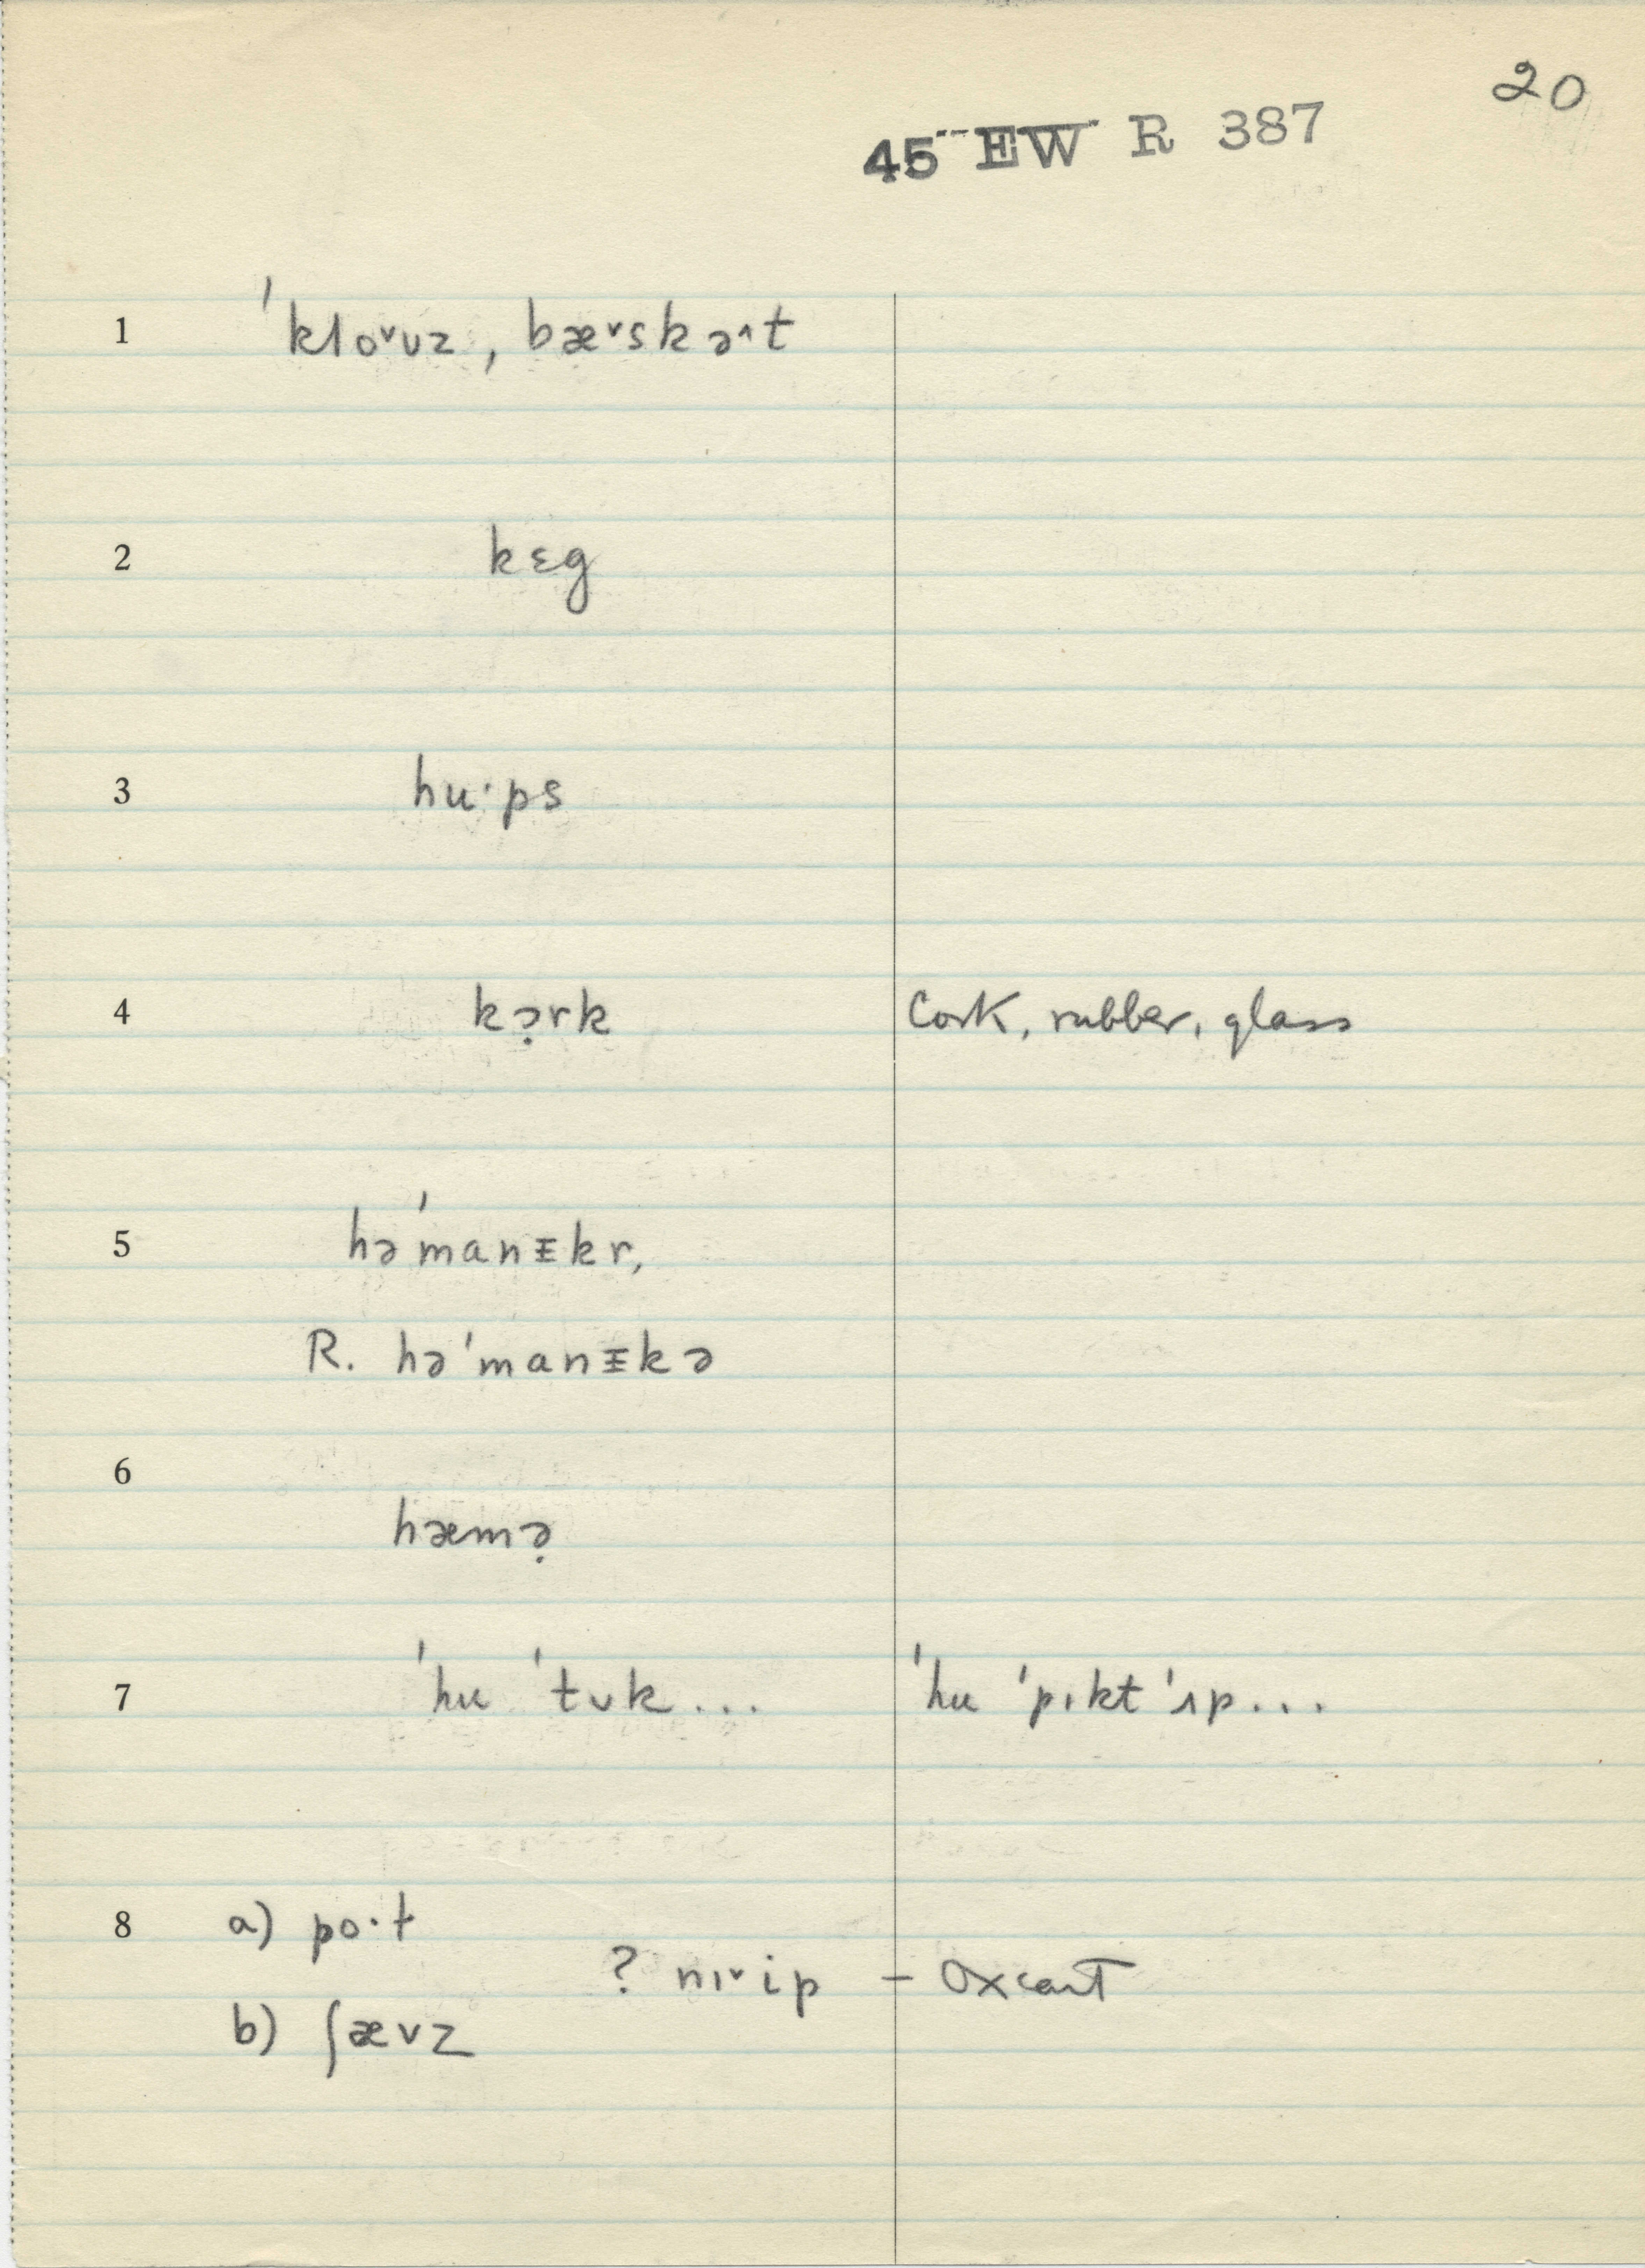 20
45 EW R 387
1 ˈkloˇʊz, bæˇskə^t
2 kɛg
3 hu·ps
4 kə̣rk Cork, rubber, glass
5 həˈmanɪkr,
R. həˈmanɪkə
6
hæmə̣
7 ˈhu ˈtʊk... ˈhu ˈpɪkt ˈʌp...
8 a) po·t
? nɪˇip – oxcart
b) ʃævz